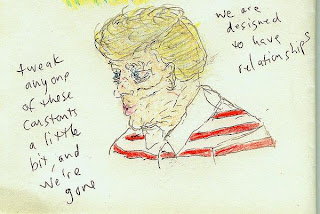 tweak
anyone
of these
constants
a little
bit, and
we're
gone
we are
designed
to have
relationships